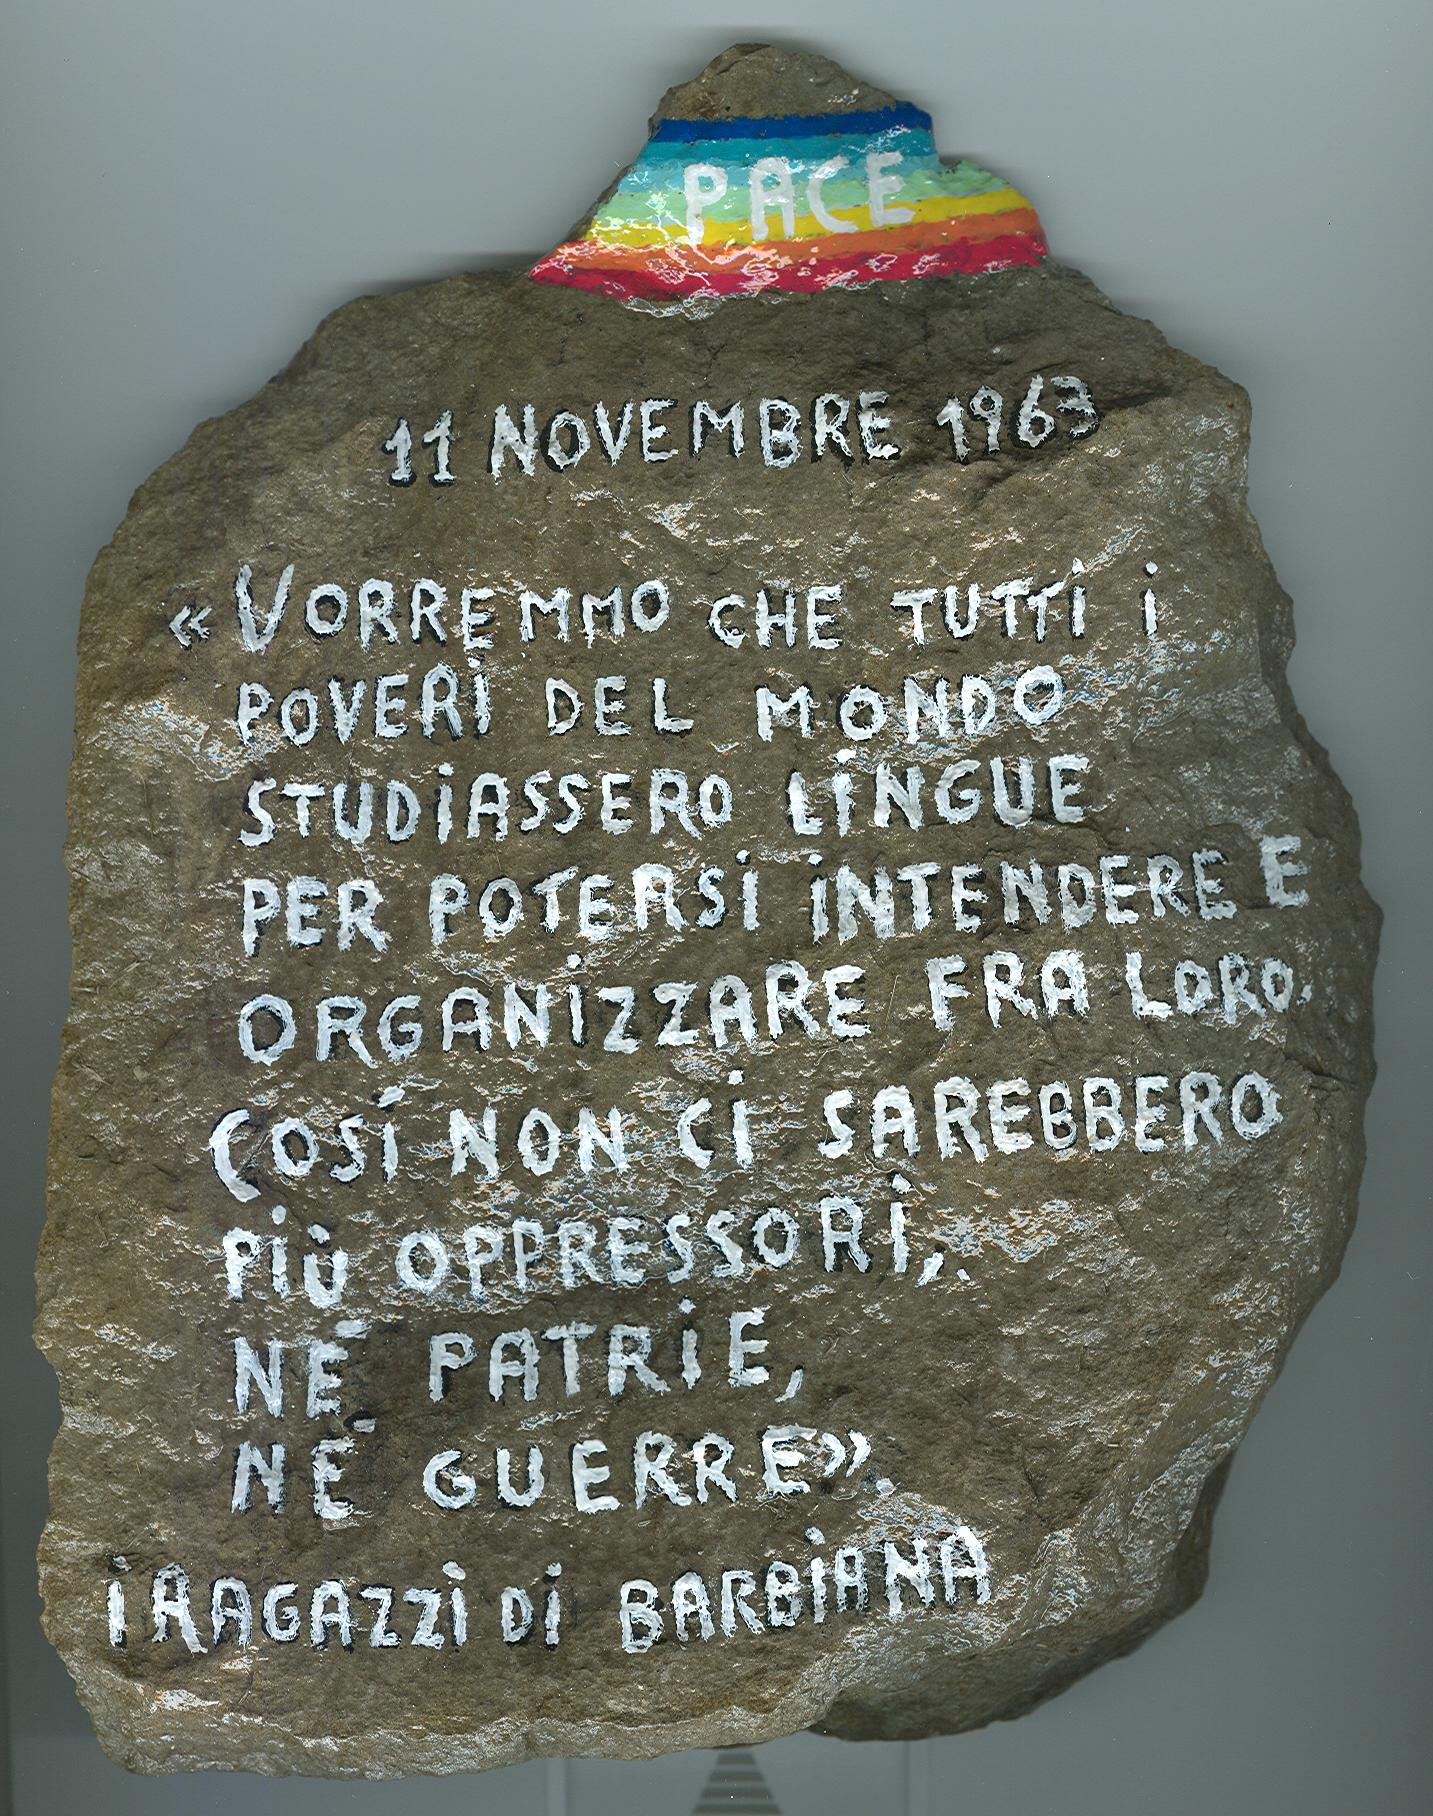 PACE
11 NOVEMBRE 1963
« VORREMMO CHE TUTTi i
POVERi DEL MONDO
STUDiASSERO LiNGUE
PER POTERSi iNTENDERE E
ORGANiZZARE FRA LORO.
COSí NON Ci SAREBBERO
PiÙ OPPRESSORi,
NÉ PATRiE,
NÉ GUERRE».
i RAGAZZi Di BARBiANA